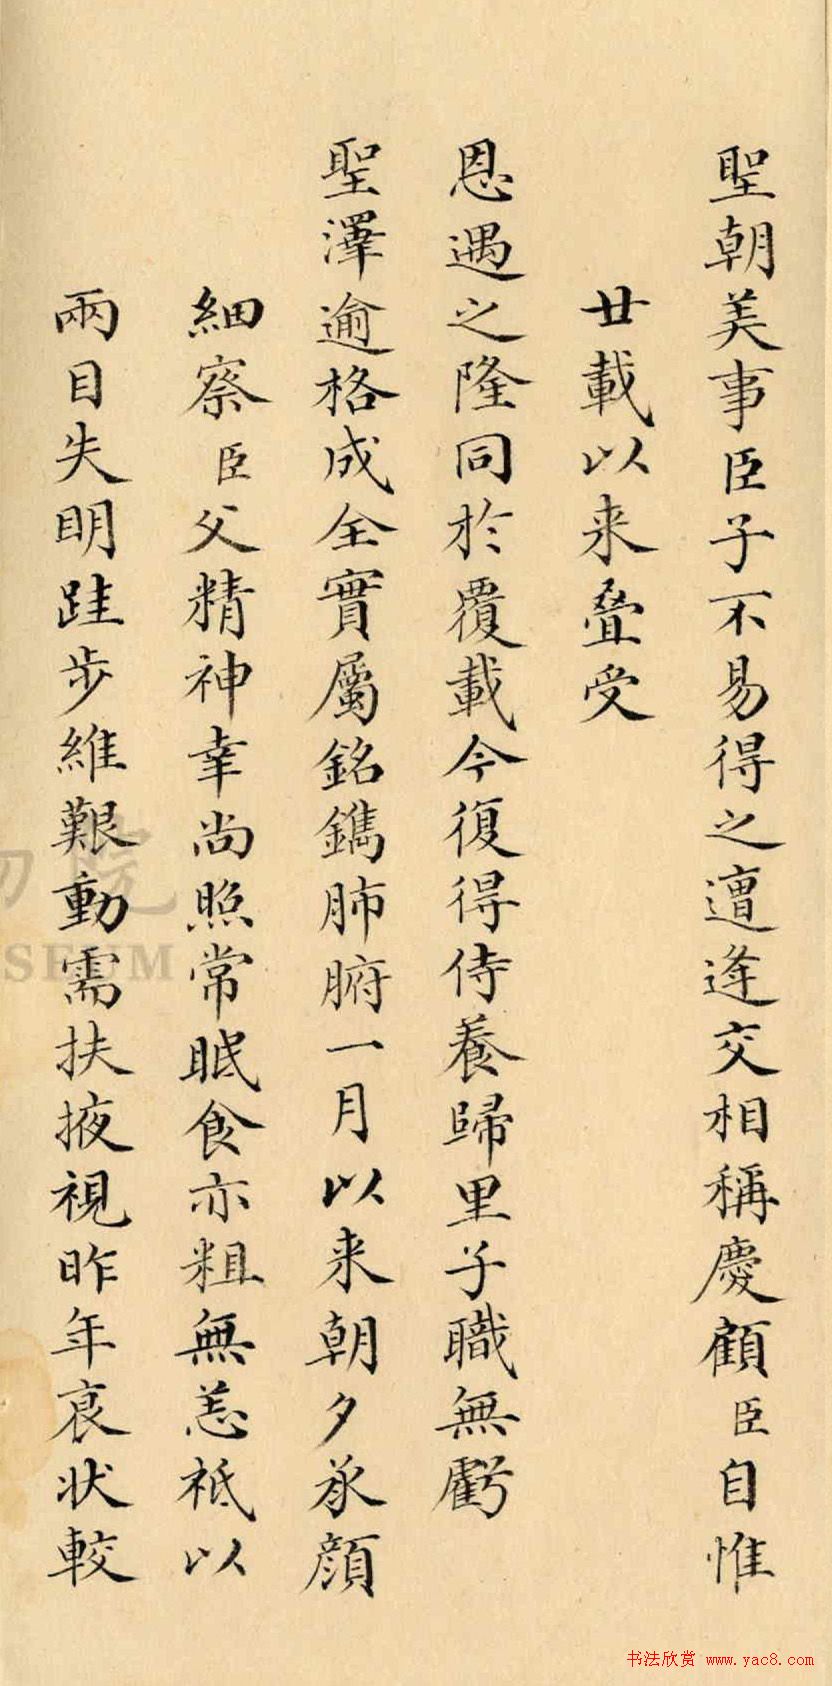 聖朝美事臣子不易得之遭逢交相稱慶顧臣自惟
廿載以来疊受
恩遇之隆同於覆載今復得侍養歸里子職無虧
聖澤逾格成全實屬銘鐫肺腑一月以来朝夕承顔
細察臣父精神幸尚照常眠食亦粗無恙祗以
兩目失明跬步維艱動需扶掖視昨年衰状較
物院
SEUM
书法欣赏 www.yac8.com